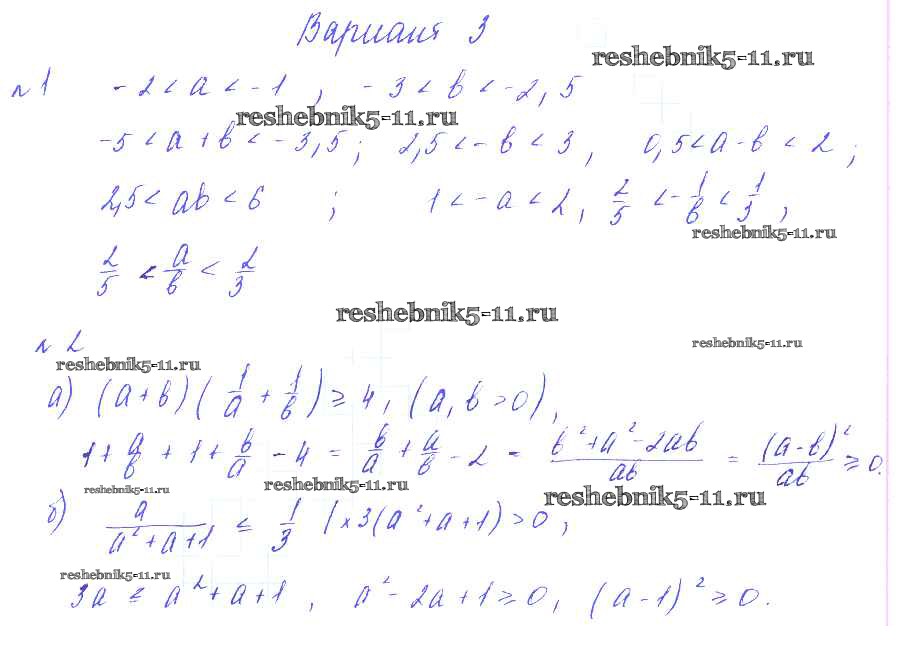 Вариант 3
reshebnik5-11.ru
№1 -2 < a < -1 , -3 < b < -2,5
reshebnik5-11.ru
-5 < a + b < -3,5 ; 2,5 < -b < 3 , 0,5 < a - b < 2 ;
2,5 < ab < 6 ; 1 < -a < 2 , 2/5 < -1/b < 1/3 ,
reshebnik5-11.ru
2/5 < a/b < 2/3
reshebnik5-11.ru
№2
reshebnik5-11.ru
reshebnik5-11.ru
а) (a + b)(1/a + 1/b) ≥ 4 , (a, b > 0) ,
1 + a/b + 1 + b/a - 4 = b/a + a/b - 2 = (b² + a² - 2ab)/ab = (a - b)²/ab ≥ 0.
reshebnik5-11.ru
reshebnik5-11.ru
reshebnik5-11.ru
б) a/(a² + a + 1) ≤ 1/3 | × 3(a² + a + 1) > 0 ,
reshebnik5-11.ru
3a ≤ a² + a + 1 , a² - 2a + 1 ≥ 0 , (a - 1)² ≥ 0.